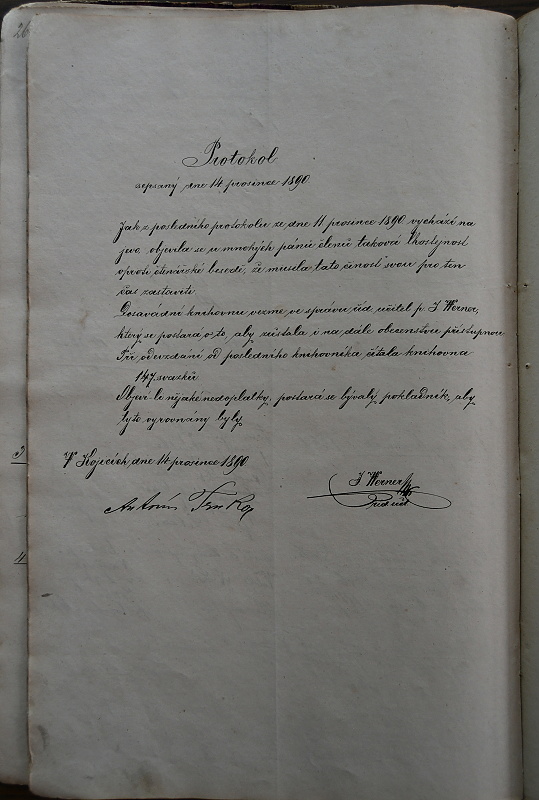 26
Protokol
sepsaný dne 14 prosince 1890.
Jak z posledního protokolu ze dne 11 prosince 1890 vychází na
jevo, objevila se u mnohých pánů členů taková lhostejnost
oproti čtenářské besedě, že musela tato činnost svou pro ten
čas zastaviti.
Dosavádní knihovnu vezme ve správu říd. učitel p. J Werner,
který se postará o to, aby zůstala i na dále obecenstvu přístupnou
Při odevzdání od posledního knihovníka čítala knihovna
147 svazků
Objeví-li se nějaké nedoplatky, postará se bývalý pokladník, aby
tyto vyrovnány byly.
V Kojecích, dne 14 prosince 1890
J Werner
Antonín
říd. uč.
3
4